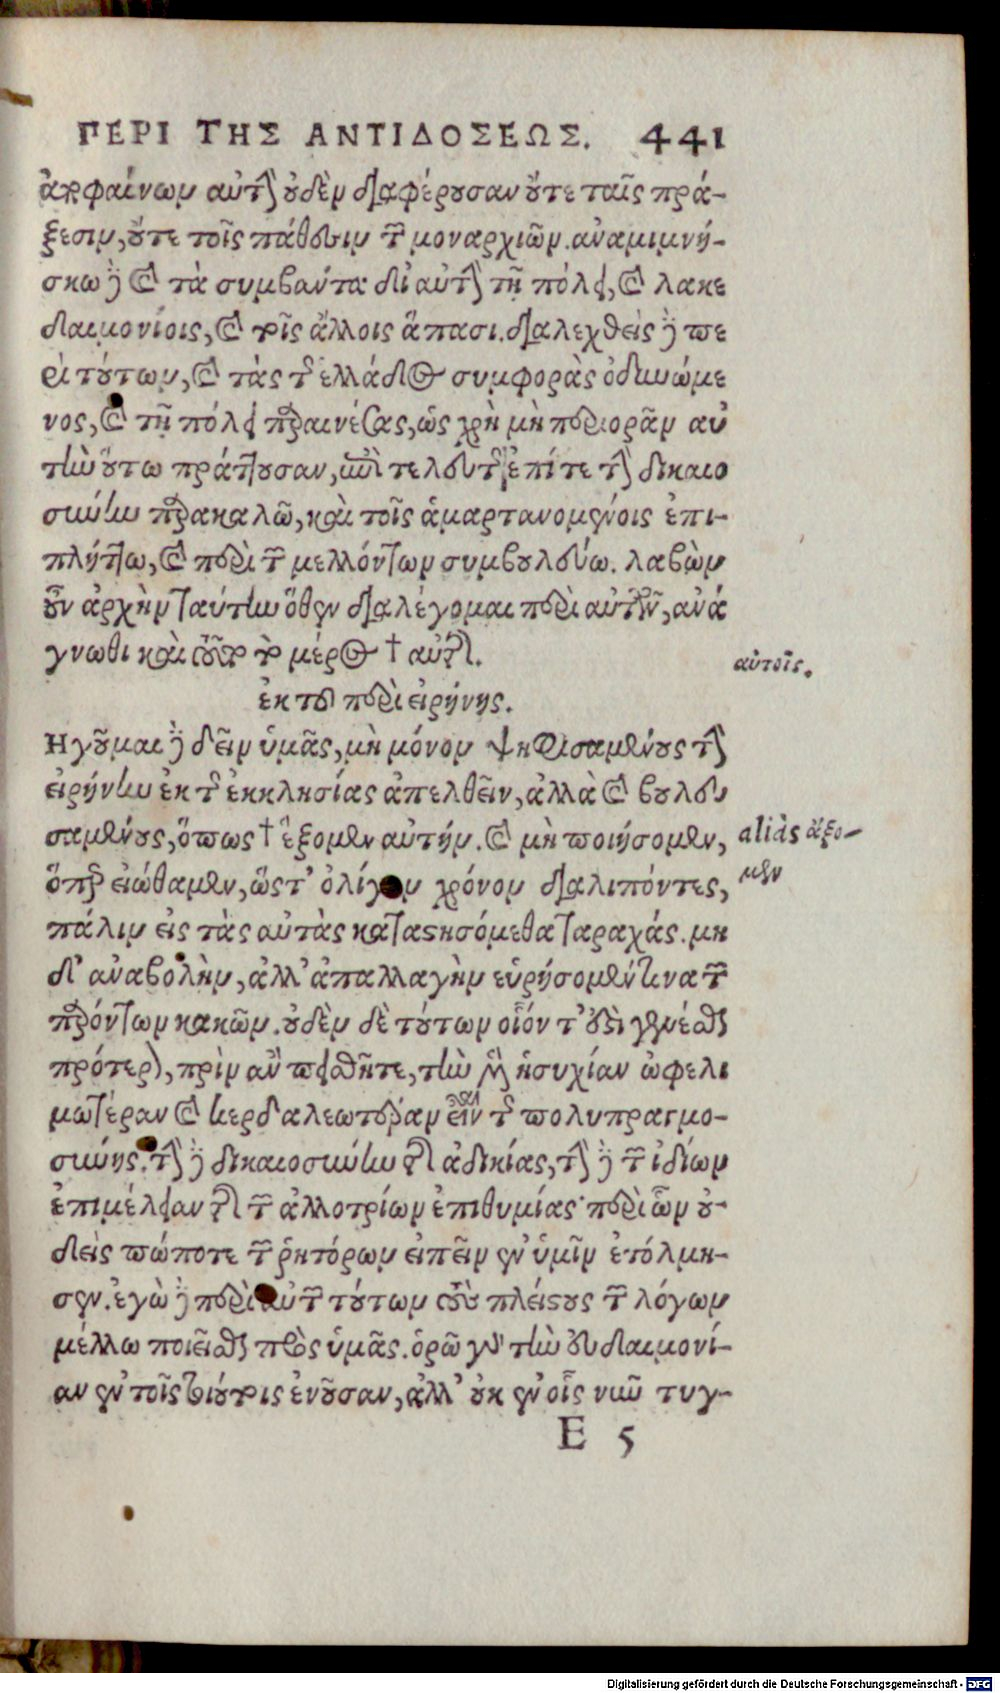 ΠΕΡΙ ΤΗΣ ΑΝΤΙΔΟΣΕΩΣ. 441
ἀποφαίνων αὐτὴν οὐδὲν διαφέρουσαν οὔτε ταῖς πρά-
ξεσιν, οὔτε τοῖς πάθεσιν τῶν μοναρχιῶν. ἀναμιμνή-
σκω δὲ καὶ τὰ συμβάντα δι' αὐτὴν τῇ πόλει, καὶ λακε
δαιμονίοις, καὶ τοῖς ἄλλοις ἅπασι. διαλεχθεὶς δὲ πε
ρὶ τούτων, καὶ τὰς τῆς ἑλλάδος συμφορὰς ὀδυρώμε
νος, καὶ τῇ πόλει παραινέσας, ὡς χρὴ μὴ περιορᾶν αὐ
τὴν οὕτω πράττουσαν, ἐπὶ τελευτῆς ἐπί τε τὴν δικαιο
σύνην παρακαλῶ, καὶ τοῖς ἁμαρτανομένοις ἐπι-
πλήττω, καὶ περὶ τῶν μελλόντων συμβουλεύω. λαβὼν
οὖν ἀρχὴν ταύτην ὅθεν διαλέγομαι περὶ αὐτῶν, ἀνά
γνωθι καὶ τοῦτο τὸ μέρος † αὐτῆς.
αὐτοῖς.
ἐκ τοῦ περὶ εἰρήνης.
Ηγοῦμαι δὲ δεῖν ὑμᾶς, μὴ μόνον ψηφισαμένους τὴν
εἰρήνην ἐκ τῆς ἐκκλησίας ἀπελθεῖν, ἀλλὰ καὶ βουλευ
σαμένους, ὅπως † ἕξομεν αὐτήν. καὶ μὴ ποιήσομεν,
aliàs ἄξο-
μεν
ὅπερ εἰώθαμεν, ὥστ' ὀλίγον χρόνον διαλιπόντες,
πάλιν εἰς τὰς αὐτὰς καταστησόμεθα ταραχάς. μη
δ' ἀναβολὴν, ἀλλ' ἀπαλλαγὴν εὑρήσομέν τινα τῶν
παρόντων κακῶν. οὐδὲν δὲ τούτων οἷόν τ' ἐστὶ γενέσθαι
πρότερον, πρὶν ἂν πεισθῆτε, τὴν μὲν ἡσυχίαν ὠφελι
μωτέραν καὶ κερδαλεωτέραν εἶναι τῆς πολυπραγμο-
σύνης. τὴν δὲ δικαιοσύνην τῆς ἀδικίας, τὴν δὲ τῶν ἰδίων
ἐπιμέλειαν τῆς τῶν ἀλλοτρίων ἐπιθυμίας· περὶ ὧν οὐ-
δεὶς πώποτε τῶν ῥητόρων εἰπεῖν ἐν ὑμῖν ἐτόλμη-
σεν. ἐγὼ δὲ περὶ αὐτῶν τούτων τοὺς πλείστους τῶν λόγων
μέλλω ποιεῖσθαι πρὸς ὑμᾶς. ὁρῶ γὰρ τὴν εὐδαιμονί-
αν ἐν τοῖς τούτοις ἐνοῦσαν, ἀλλ' οὐκ ἐν οἷς νῦν τυγ-
E 5
Digitalisierung gefördert durch die Deutsche Forschungsgemeinschaft - DFG